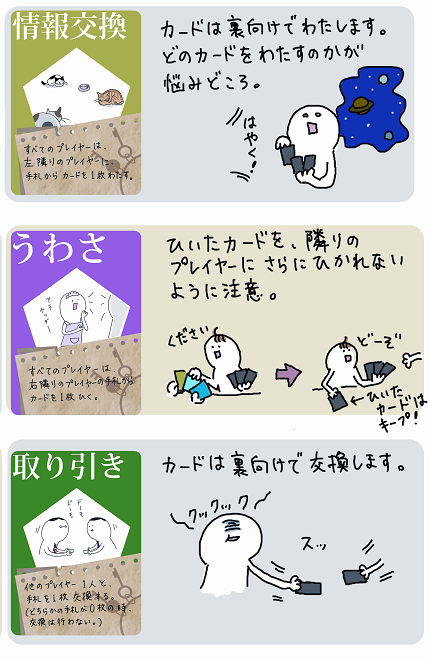 情報交換
すべてのプレイヤーは、
左隣りのプレイヤーに、
手札からカードを1枚わたす。
カードは裏向けでわたします。
どのカードをわたすのかが
悩みどころ。
はやく!
うわさ
すべてのプレイヤーは、
右隣りのプレイヤーの手札から
カードを1枚ひく。
ひいたカードを、隣りの
プレイヤーにさらにひかれない
ように注意。
ください
どーぞ
←ひいた
カードは
キープ!
取り引き
ドーモ
ドーモ
他のプレイヤー1人と、
手札を1枚交換する。
(どちらかの手札が0枚の時、
交換は行わない。)
カードは裏向けで交換します。
クックック
スッ